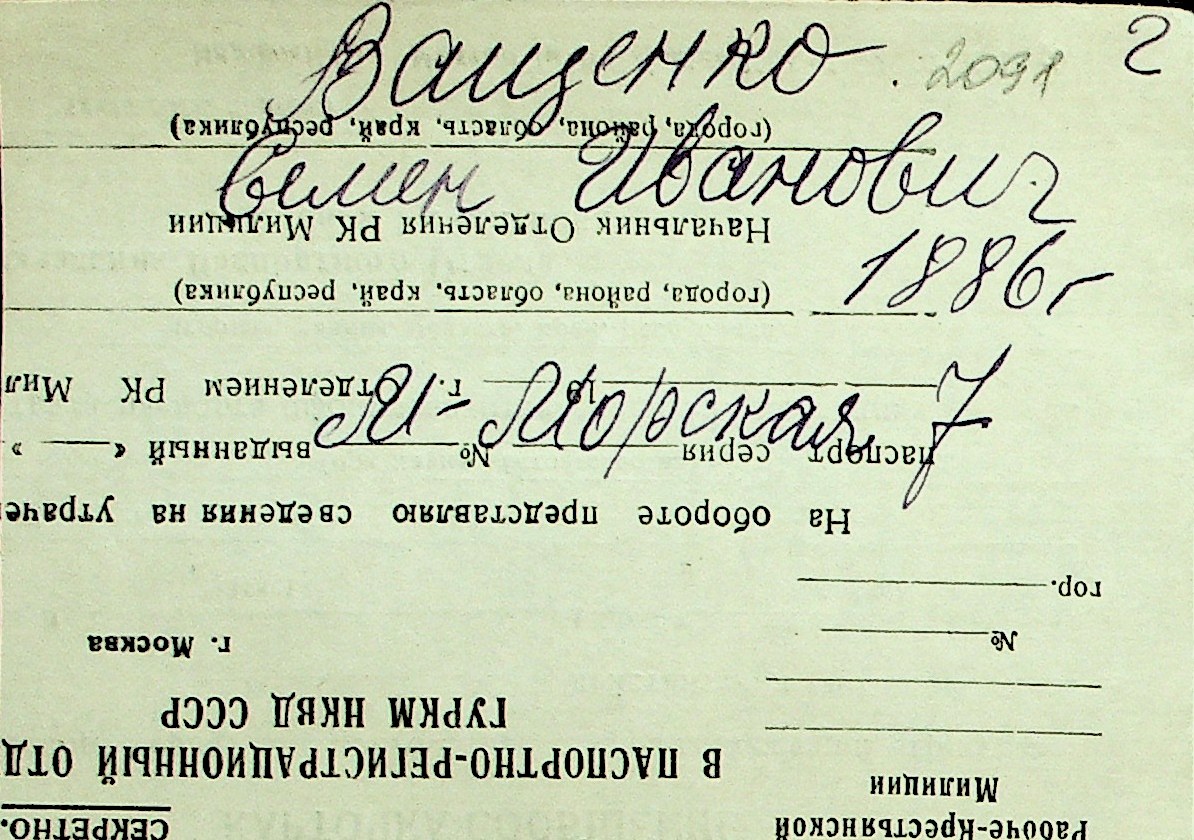 Ващенко 2091 2
Семен Иванович
1886 г
М-Морская 7
СЕКРЕТНО.
Рабоче-Крестьянской
Милиции
В ПАСПОРТНО-РЕГИСТРАЦИОННЫЙ ОТД
ГУРКМ НКВД СССР
г. Москва
№
гор.
На обороте представляю сведения на утрачен
паспорт серия № выданный « »
19 г. Отделением РК Мил
(города, района, область, край, республика)
Начальник Отделения РК Милиции
(города, района, область, край, республика)